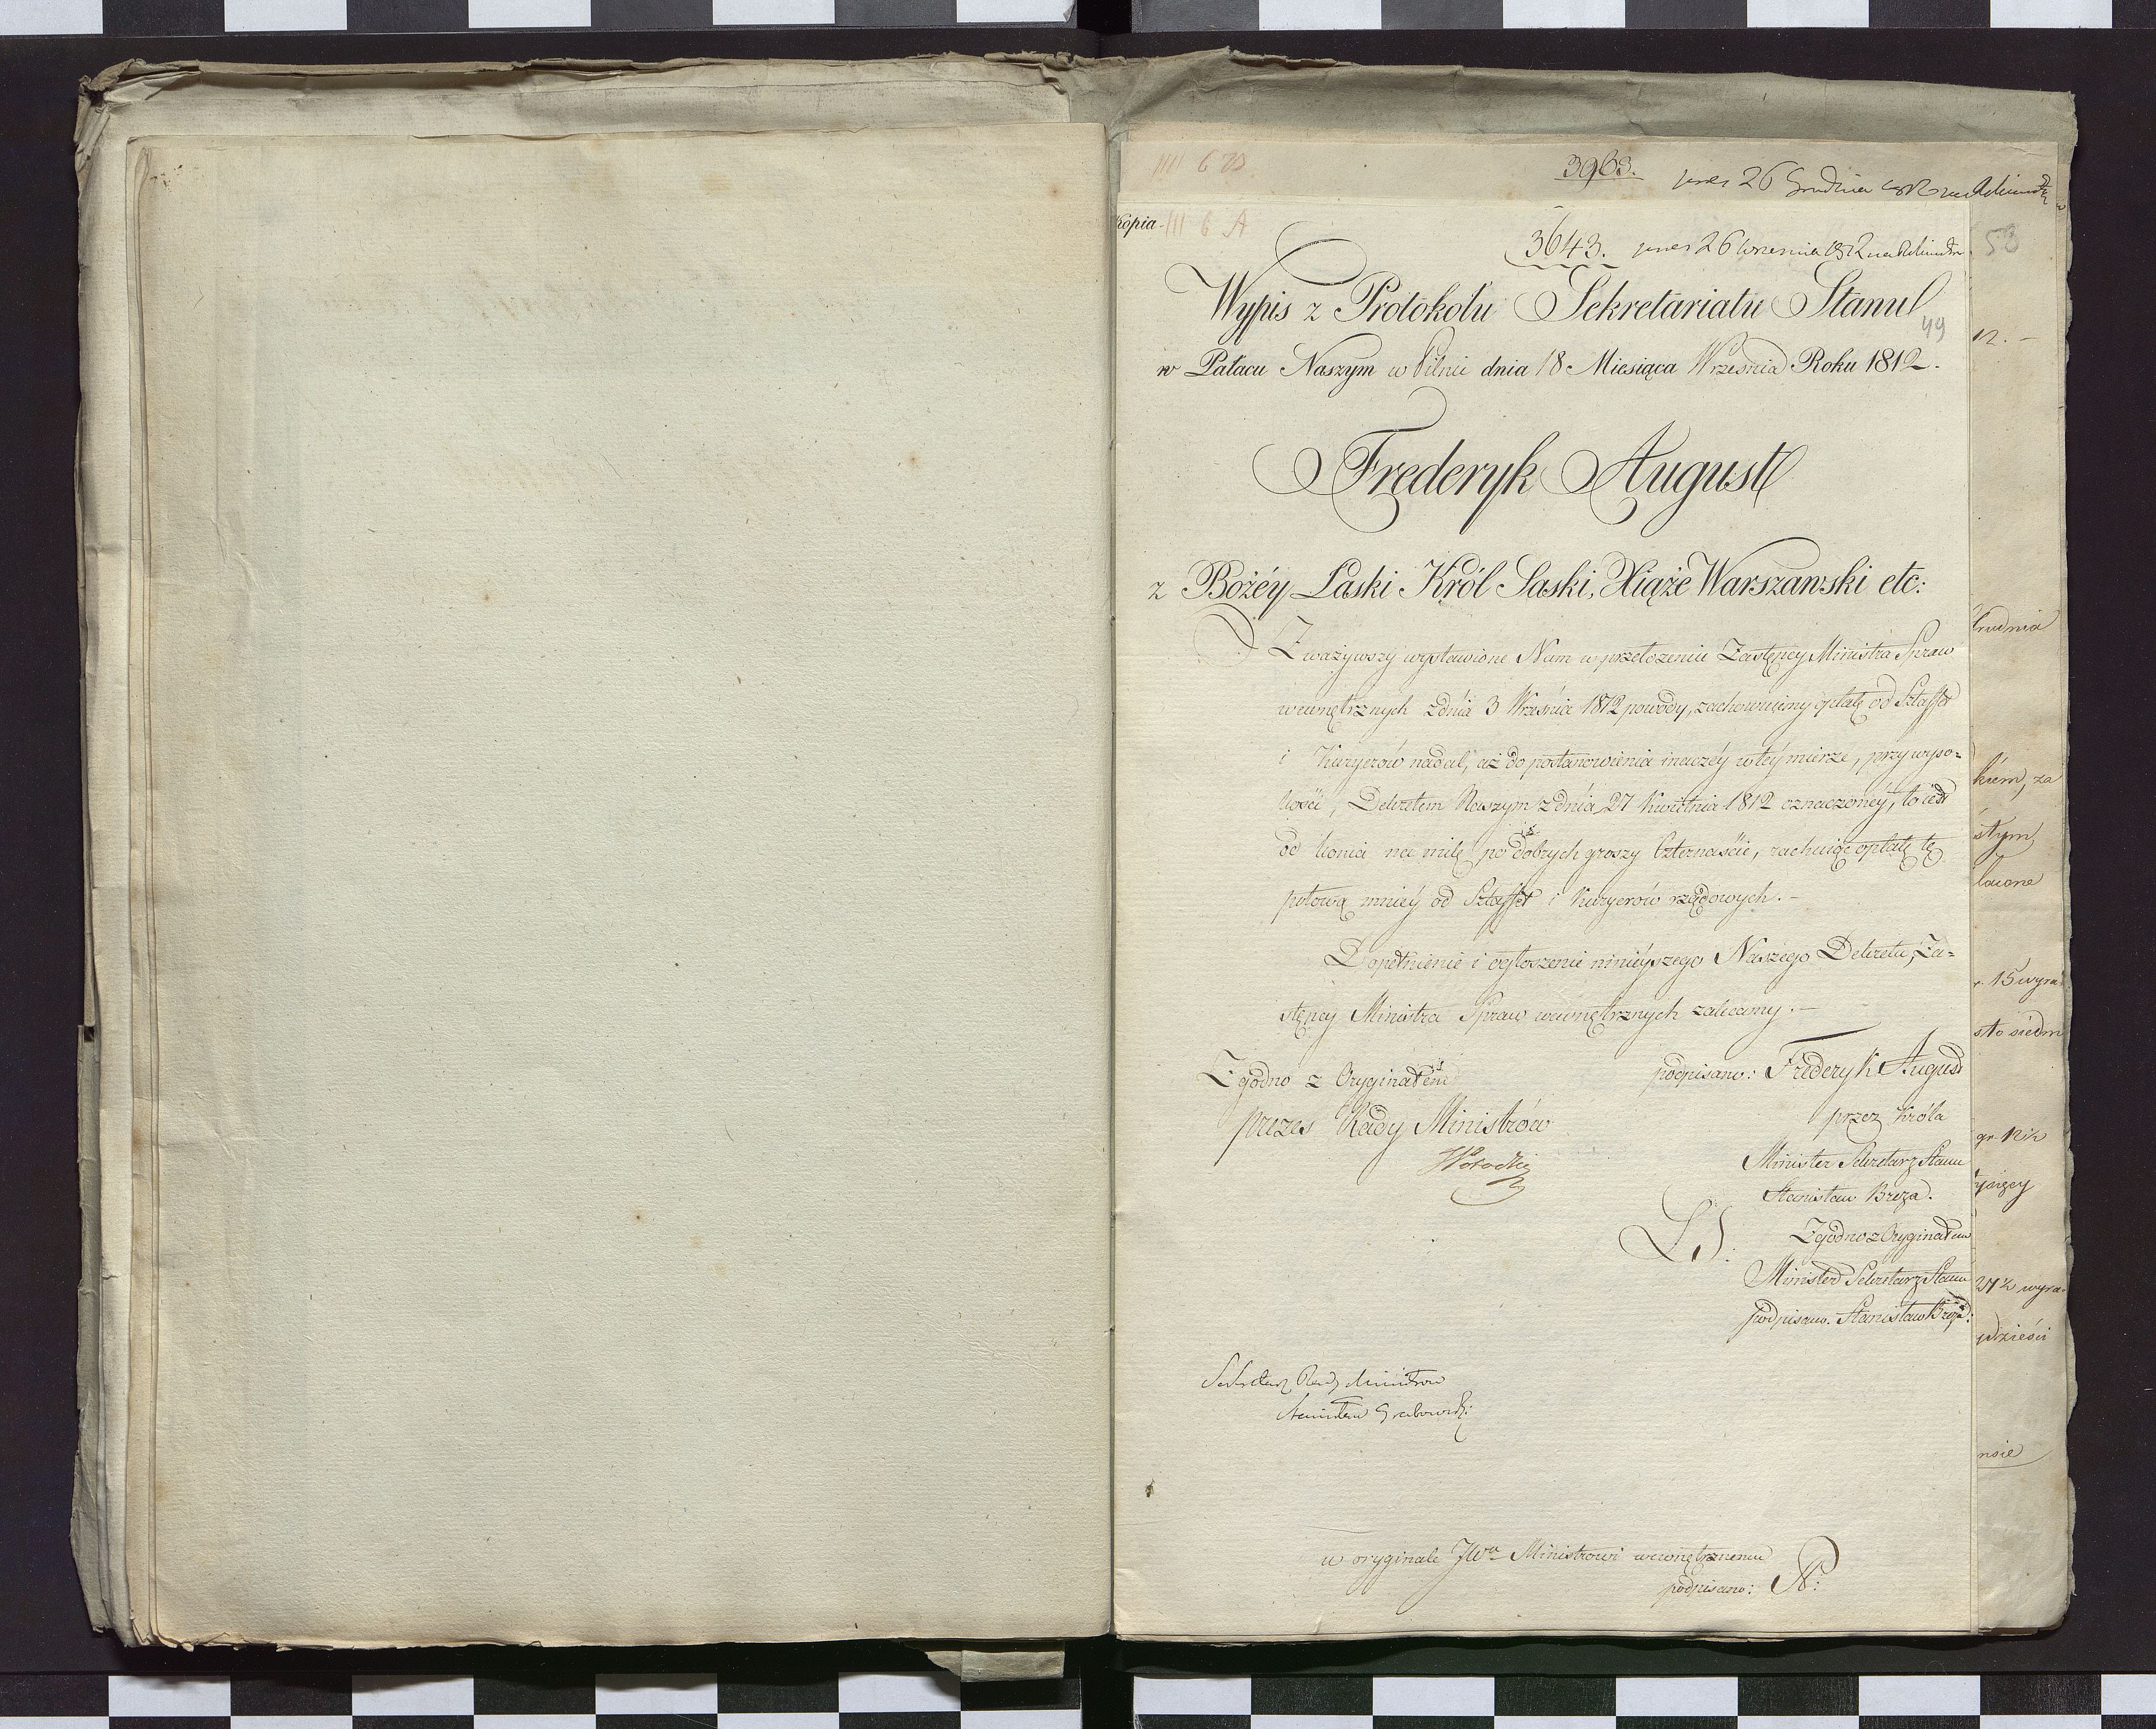 III 6 B
3963. prez 26 Grudnia 1812
58
Kopia. III 6 A
3643. prez 26 Września 1812
Wypis z Protokołu Sekretariatu Stanu
49
w Pałacu Naszym w Pilnic dnia 18 Miesiąca Września Roku 1812.
Frederyk August
z Bożéy Łaski Król Saski, Xiąże Warszawski etc:
Zważywszy wystawione Nam w przełożeniu Zastępcy Ministra Spraw
wewnętrznych z dnia 3 Września 1812 powody, zachowujemy opłatę od Sztaffet
i Kuryerów nadal, aż do postanowienia inaczéy w téy mierze, przy wyso-
kości, Dekretem Naszym z dnia 27 Kwietnia 1812 oznaczonéy, to iest
od konia na milę po dobrych groszy Czternaście, rachuiąc opłatę tę
połową mniéy od Sztaffet i Kuryerów rządowych. –
Dopełnienie i ogłoszenie ninieyszego Naszego Dekretu, Za-
stępcy Ministra Spraw wewnętrznych zalecamy. –
Zgodno z Oryginałem
podpisano: Frederyk August
prezes Rady Ministrów
przez Króla
Minister Sekretarz Stanu
Stanisław Breza.
L.S.
Zgodno z Oryginałem
Minister Sekretarz Stanu
podpisano. Stanisław Breza:
Sekretarz Rady Ministrów
Stanisław Grabowski
w oryginale JWu Ministrowi wewnętrznemu
podpisano:
12. –
Grudnia
kiem, za
stym
r. 15 wyra
sto siedm
tysięcy
27½ wyra-
dzieści
nsie